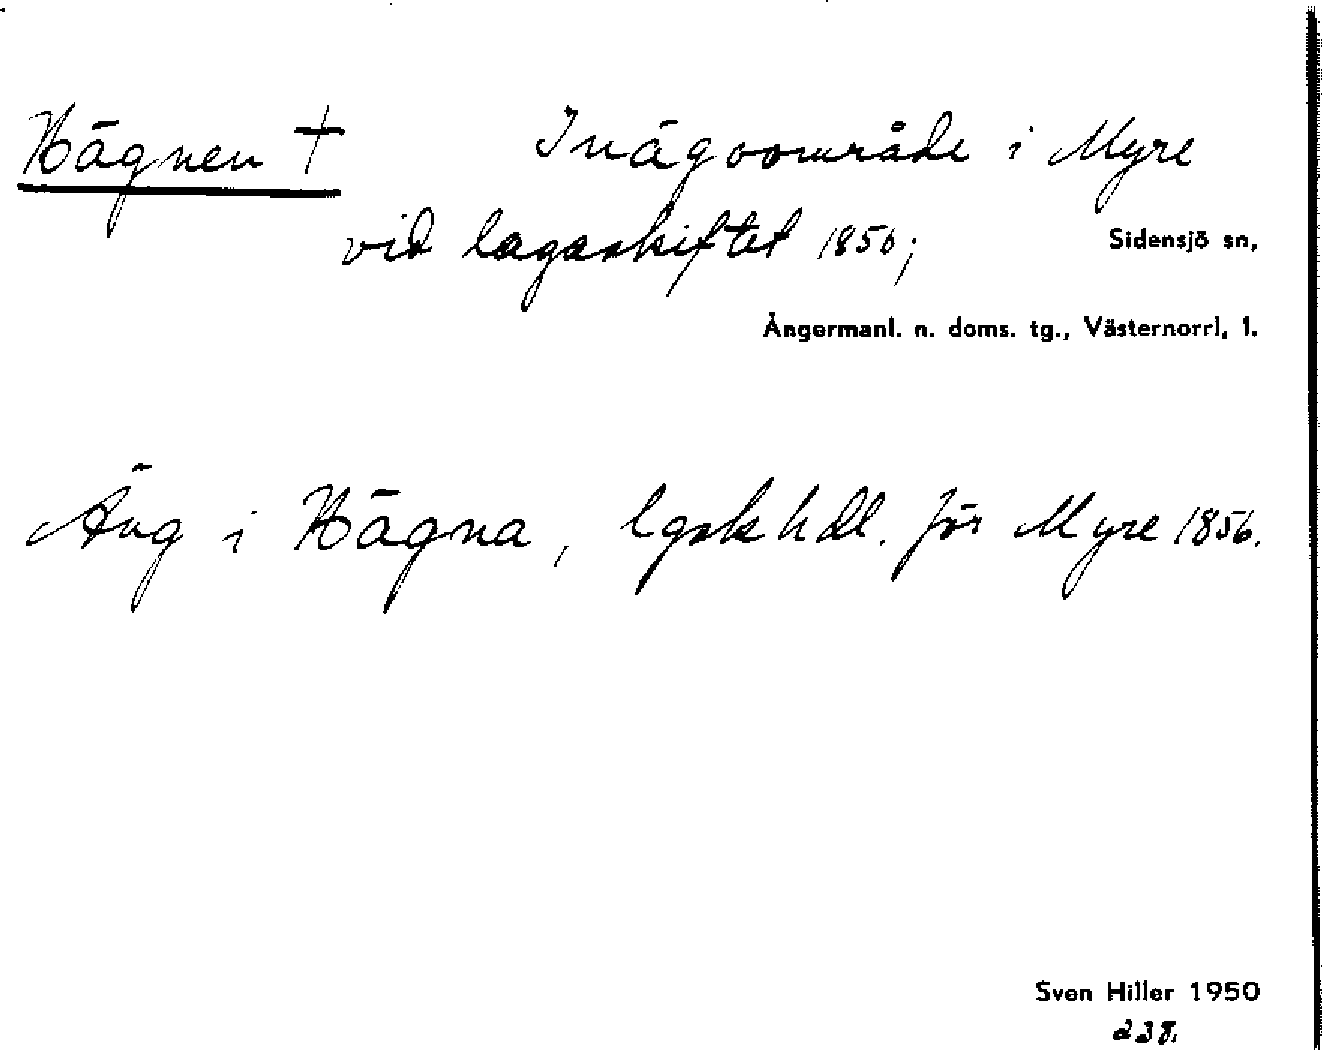 Hägnen † Inägoområde i Myre
vid lagaskiftet 1856;
Sidensjö sn,
Ångermanl. n. doms. tg., Västernorrl. l.
Äng i Hägna, lgskhdl. för Myre 1856.
Sven Hiller 1950
238.